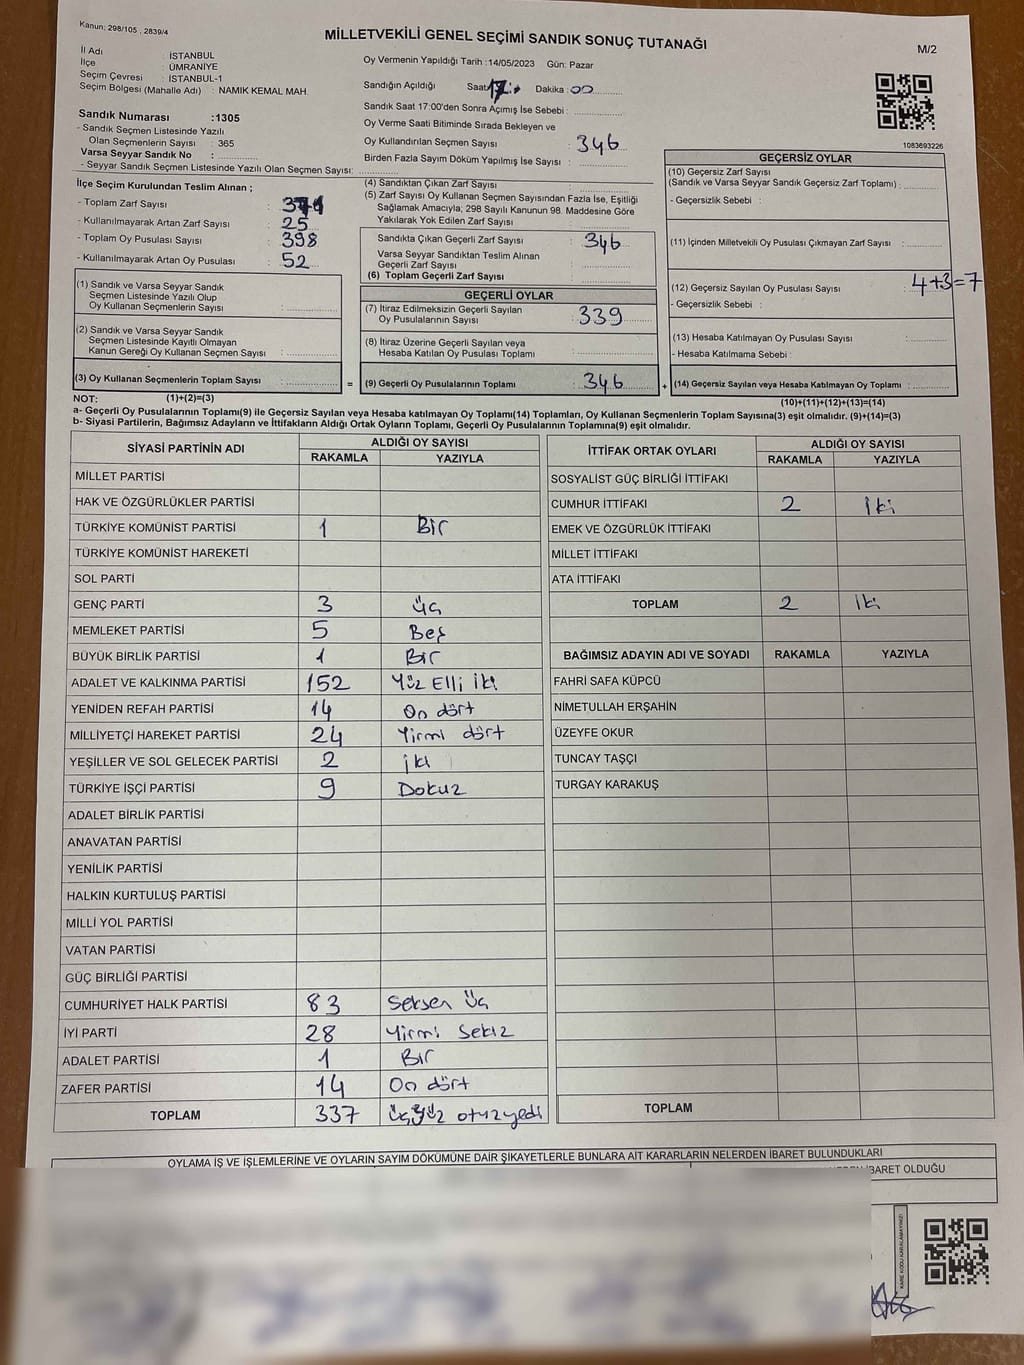 Kanun: 298/105 , 2839/4
MİLLETVEKİLİ GENEL SEÇİMİ SANDIK SONUÇ TUTANAĞI
M/2
İl Adı : İSTANBUL
İlçe : ÜMRANİYE
Seçim Çevresi : İSTANBUL-1
Seçim Bölgesi (Mahalle Adı) : NAMIK KEMAL MAH.
Sandık Numarası :1305
- Sandık Seçmen Listesinde Yazılı
Olan Seçmenlerin Sayısı : 365
Varsa Seyyar Sandık No :
- Seyyar Sandık Seçmen Listesinde Yazılı Olan Seçmen Sayısı:
Oy Vermenin Yapıldığı Tarih :14/05/2023 Gün: Pazar
Sandığın Açıldığı Saat 17 Dakika : 00
Sandık Saat 17:00'den Sonra Açımış İse Sebebi :
Oy Verme Saati Bitiminde Sırada Bekleyen ve
Oy Kullandırılan Seçmen Sayısı : 346
Birden Fazla Sayım Döküm Yapılmış İse Sayısı :
1083693226
İlçe Seçim Kurulundan Teslim Alınan ;
- Toplam Zarf Sayısı :
- Kullanılmayarak Artan Zarf Sayısı : 25
- Toplam Oy Pusulası Sayısı : 398
- Kullanılmayarak Artan Oy Pusulası : 52
(1) Sandık ve Varsa Seyyar Sandık
Seçmen Listesinde Yazılı Olup
Oy Kullanan Seçmenlerin Sayısı :
(2) Sandık ve Varsa Seyyar Sandık
Seçmen Listesinde Kayıtlı Olmayan
Kanun Gereği Oy Kullanan Seçmen Sayısı :
(3) Oy Kullanan Seçmenlerin Toplam Sayısı :
(4) Sandıktan Çıkan Zarf Sayısı :
(5) Zarf Sayısı Oy Kullanan Seçmen Sayısından Fazla İse, Eşitliği
Sağlamak Amacıyla; 298 Sayılı Kanunun 98. Maddesine Göre
Yakılarak Yok Edilen Zarf Sayısı :
Sandıkta Çıkan Geçerli Zarf Sayısı : 346
Varsa Seyyar Sandıktan Teslim Alınan
Geçerli Zarf Sayısı :
(6) Toplam Geçerli Zarf Sayısı :
GEÇERLİ OYLAR
(7) İtiraz Edilmeksizin Geçerli Sayılan
Oy Pusulalarının Sayısı : 339
(8) İtiraz Üzerine Geçerli Sayılan veya
Hesaba Katılan Oy Pusulası Toplamı :
= (9) Geçerli Oy Pusulalarının Toplamı : 346 +
GEÇERSİZ OYLAR
(10) Geçersiz Zarf Sayısı
(Sandık ve Varsa Seyyar Sandık Geçersiz Zarf Toplamı) :
- Geçersizlik Sebebi :
(11) İçinden Milletvekili Oy Pusulası Çıkmayan Zarf Sayısı :
(12) Geçersiz Sayılan Oy Pusulası Sayısı : 4+3=7
- Geçersizlik Sebebi :
(13) Hesaba Katılmayan Oy Pusulası Sayısı :
- Hesaba Katılmama Sebebi :
(14) Geçersiz Sayılan veya Hesaba Katılmayan Oy Toplamı :
NOT: (1)+(2)=(3) (10)+(11)+(12)+(13)=(14)
a- Geçerli Oy Pusulalarının Toplamı(9) ile Geçersiz Sayılan veya Hesaba katılmayan Oy Toplamı(14) Toplamları, Oy Kullanan Seçmenlerin Toplam Sayısına(3) eşit olmalıdır. (9)+(14)=(3)
b- Siyasi Partilerin, Bağımsız Adayların ve İttifakların Aldığı Ortak Oyların Toplamı, Geçerli Oy Pusulalarının Toplamına(9) eşit olmalıdır.
SİYASİ PARTİNİN ADI ALDIĞI OY SAYISI
RAKAMLA YAZIYLA
MİLLET PARTİSİ
HAK VE ÖZGÜRLÜKLER PARTİSİ
TÜRKİYE KOMÜNİST PARTİSİ 1 Bir
TÜRKİYE KOMÜNİST HAREKETİ
SOL PARTİ
GENÇ PARTİ 3 Üç
MEMLEKET PARTİSİ 5 Beş
BÜYÜK BİRLİK PARTİSİ 1 Bir
ADALET VE KALKINMA PARTİSİ 152 Yüz Elli iki
YENİDEN REFAH PARTİSİ 14 On dört
MİLLİYETÇİ HAREKET PARTİSİ 24 Yirmi dört
YEŞİLLER VE SOL GELECEK PARTİSİ 2 iki
TÜRKİYE İŞÇİ PARTİSİ 9 Dokuz
ADALET BİRLİK PARTİSİ
ANAVATAN PARTİSİ
YENİLİK PARTİSİ
HALKIN KURTULUŞ PARTİSİ
MİLLİ YOL PARTİSİ
VATAN PARTİSİ
GÜÇ BİRLİĞİ PARTİSİ
CUMHURİYET HALK PARTİSİ 83 Seksen Üç
İYİ PARTİ 28 Yirmi Sekiz
ADALET PARTİSİ 1 Bir
ZAFER PARTİSİ 14 On dört
TOPLAM 337 üçyüz otuzyedi
İTTİFAK ORTAK OYLARI ALDIĞI OY SAYISI
RAKAMLA YAZIYLA
SOSYALİST GÜÇ BİRLİĞİ İTTİFAKI
CUMHUR İTTİFAKI 2 iki
EMEK VE ÖZGÜRLÜK İTTİFAKI
MİLLET İTTİFAKI
ATA İTTİFAKI
TOPLAM 2 iki
BAĞIMSIZ ADAYIN ADI VE SOYADI RAKAMLA YAZIYLA
FAHRİ SAFA KÜPCÜ
NİMETULLAH ERŞAHİN
ÜZEYFE OKUR
TUNCAY TAŞÇI
TURGAY KARAKUŞ
TOPLAM
OYLAMA İŞ VE İŞLEMLERİNE VE OYLARIN SAYIM DÖKÜMÜNE DAİR ŞİKAYETLERLE BUNLARA AİT KARARLARIN NELERDEN İBARET BULUNDUKLARI
İBARET OLDUĞU
KARE KODU KARALAMAYINIZ!